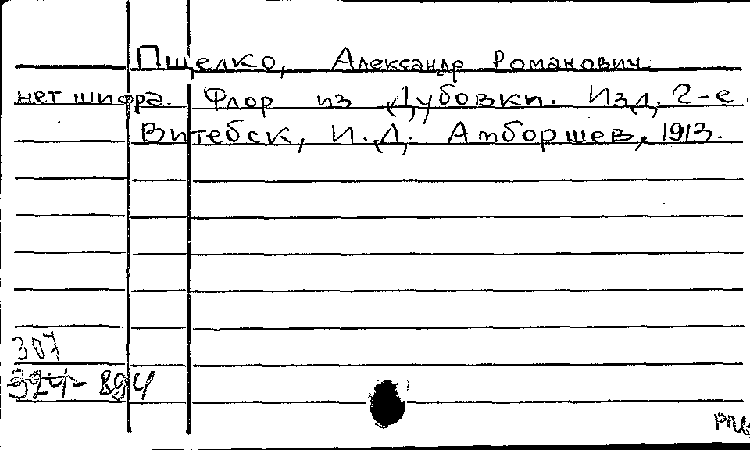 Пщелко, Александр Романович.
нет шифра. Флор из Дубовки. Изд. 2-е.
Витебск, И.Д. Амборшев, 1913.
307
324-894